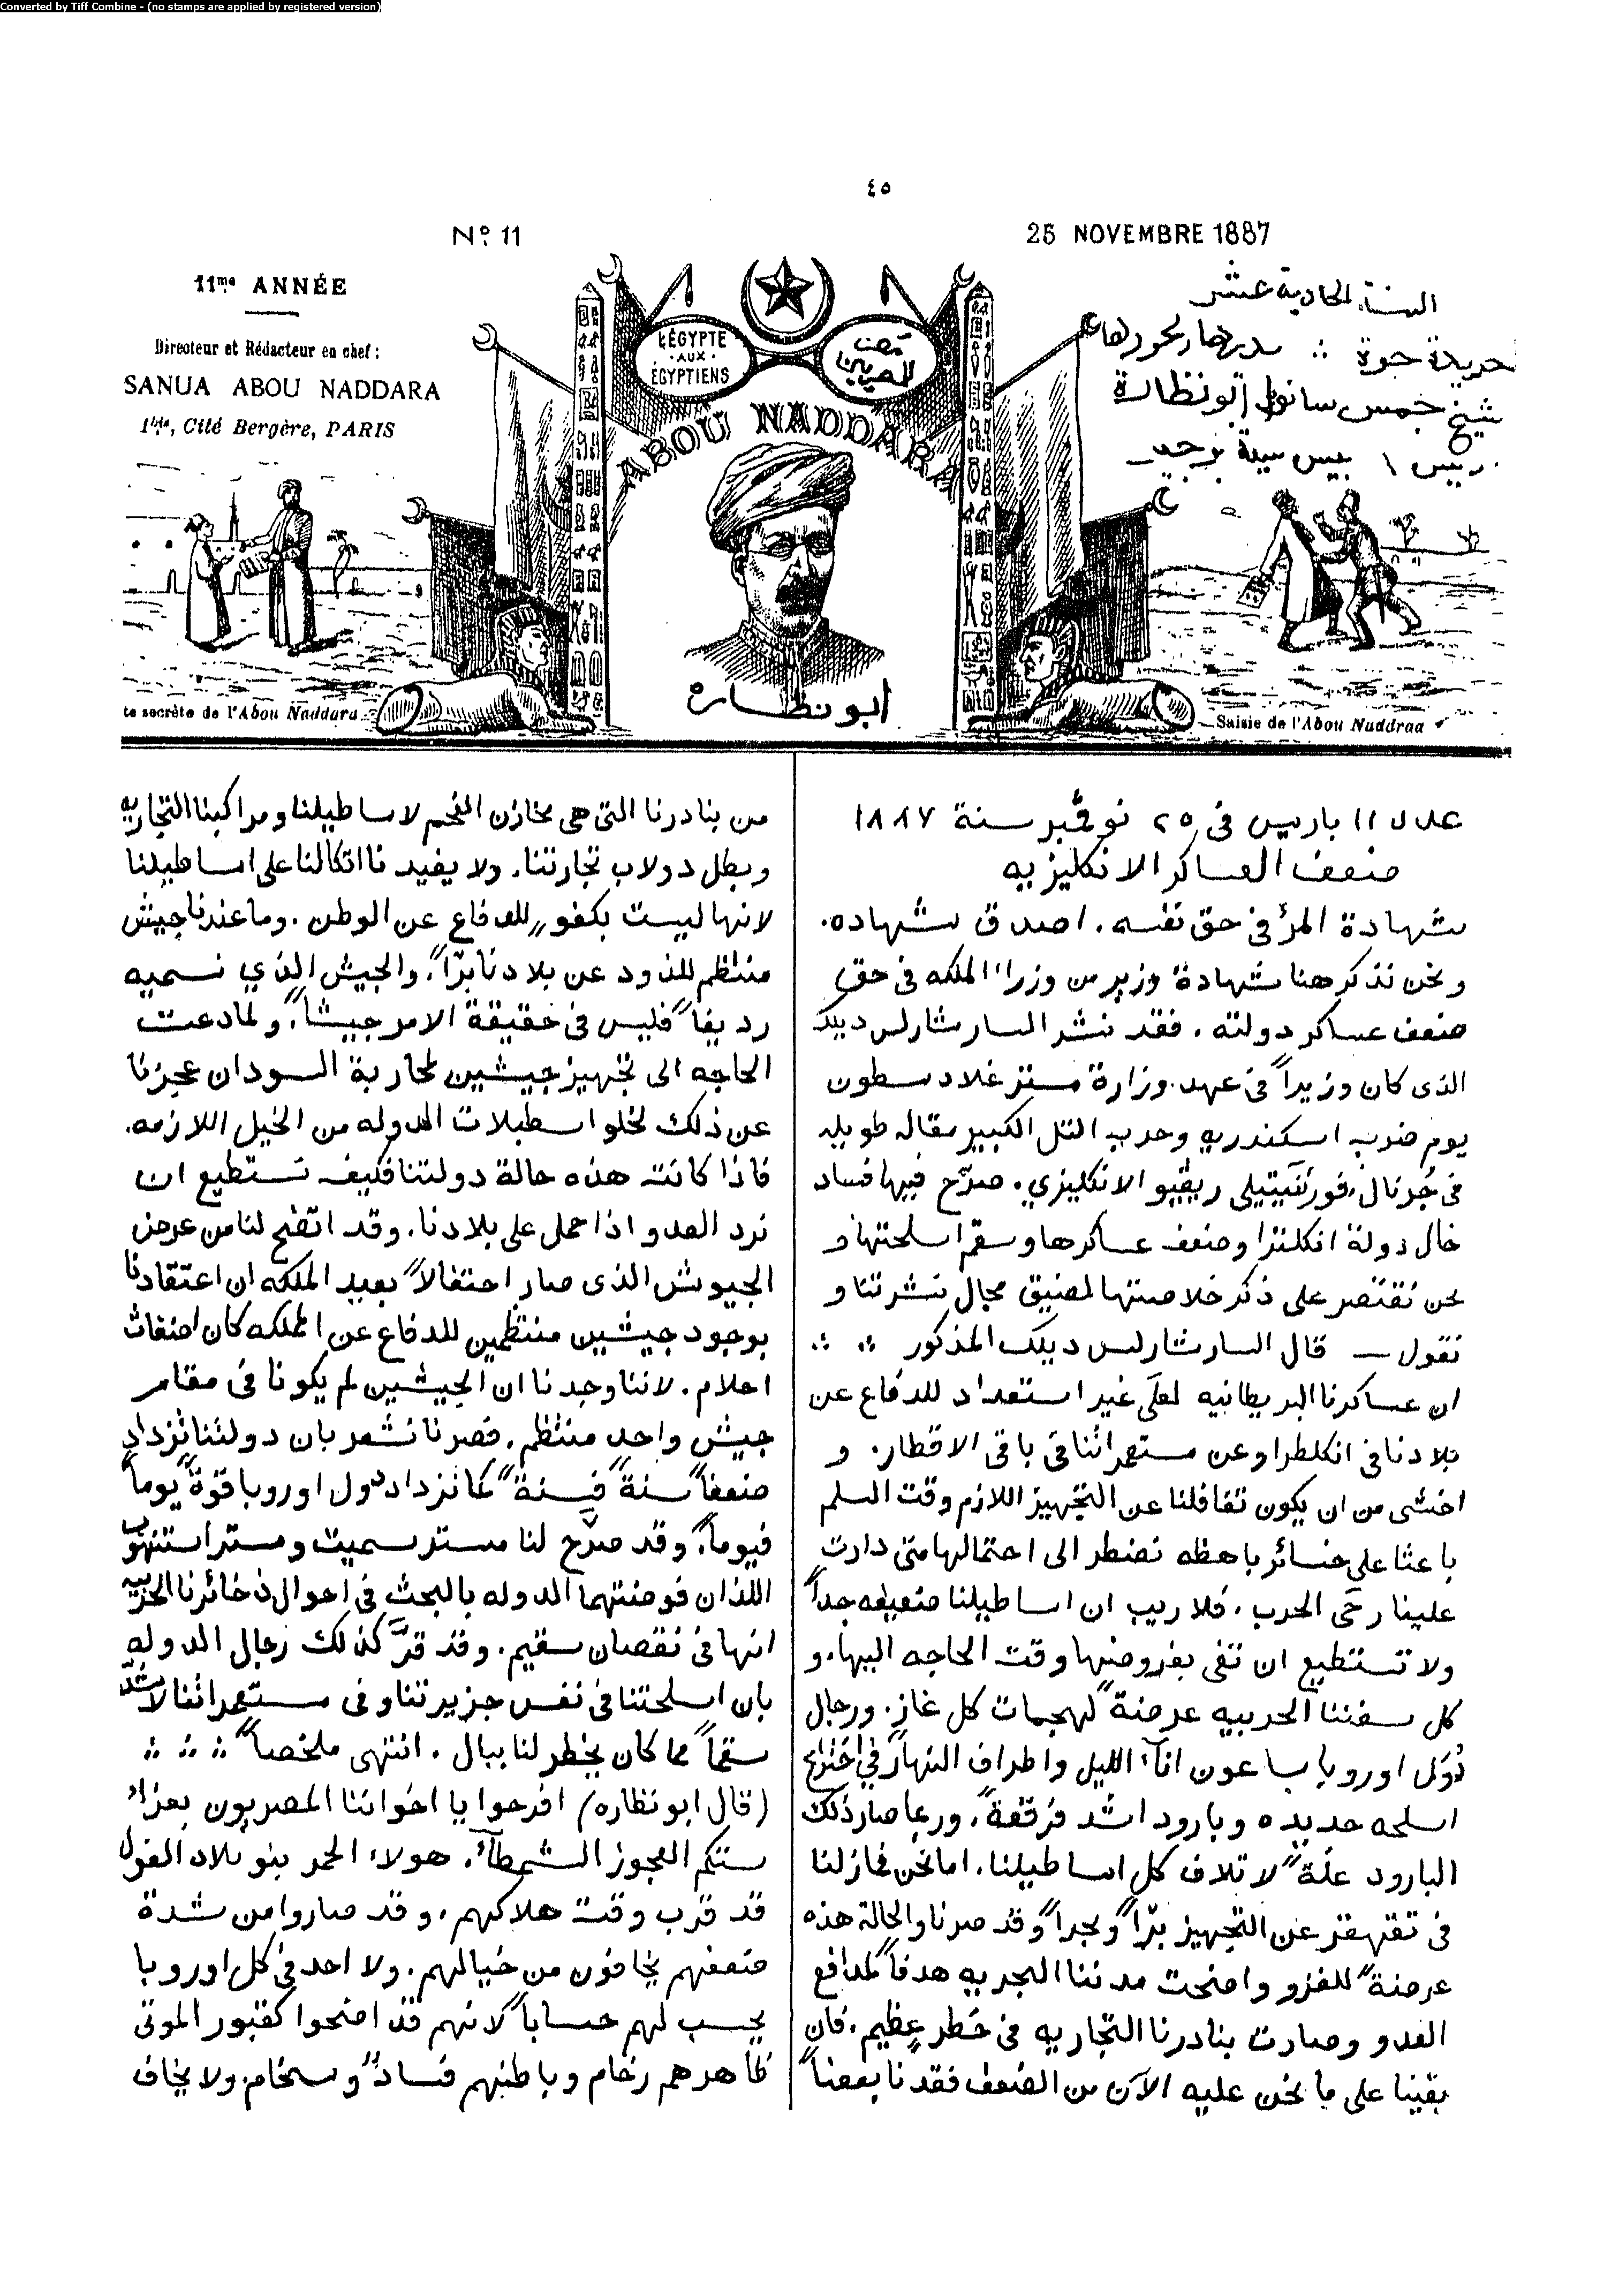 Converted by Tiff Combine - (no stamps are applied by registered version)
٤٥
Nº 11
25 NOVEMBRE 1887
11me ANNÉE
Directeur et Rédacteur en chef :
SANUA ABOU NADDARA
Cité Bergère, PARIS
السنة الحادية عشر
جريدة حرة ∴ مديرها ومحررها
شيخ جمس سانوا ابو نظارة
L'ÉGYPTE
AUX
ÉGYPTIENS
مصر
للمصريين
ABOU NADDARA
ابو نظاره
te secrète de l'Abou Naddara
Saisie de l'Abou Naddraa
عدد ١١ باريس فى ٢٥ نوڤمبر سنة ١٨٨٧
ضعف العساكر الانكليزيه
شهادة المرء فى حق نفسه. اصدق شهاده.
ونحن نذكر هنا شهادة وزير من وزراء الملكه فى حق
ضعف عساكر دولته. فقد نشر السار شارلس ديلك
الذى كان وزيراً فى عهد وزارة مستر غلادسطون
يوم ضرب اسكندريه وحرب التل الكبير مقاله طويله
فى جُرنال فورتنَيتيلى ريڤيو الانكليزي. صرّح فيها فساد
حال دولة انكلترا وضعف عساكرها وسقم اسلحتها و
نحن نقتصر على ذكر خلاصتها لضيق مجال نشرتنا و
نقول — قال السار شارلس ديلك المذكور ∴ ∴
ان عساكرنا البريطانيه لعلى غير استعداد للدفاع عن
بلادنا فى انكلطرا وعن مستعمراتنا فى باقى الاقطار. و
اخشى من ان يكون تغافلنا عن التجهيز اللازم وقت السلم
باعثا على خسائر باهظه نضطر الى احتمالها متى دارت
علينا رحى الحرب. فلا ريب ان اساطيلنا ضعيفه جداً
ولا تستطيع ان تفى بفروضها وقت الحاجه اليها. و
كل سفننا الحربيه عرضةً لهجمات كل غازٍ. ورجال
دُوَل اوروبا ساعون اناء الليل واطراف النهار فى اختراع
اسلحه جديده وبارود اشد فرقعةً. وربما صار ذلك
البارود علّةً لاتلاف كل اساطيلنا. اما نحن فما زلنا
فى تقهقر عن التجهيز برّاً وبحراً وقد صرنا والحالة هذه
عرضةً للغزو واضحت مدننا البحريه هدفاً لمدافع
العدو وصارت بنادرنا التجاريه فى خطر عظيم. فان
بقينا على ما نحن عليه الآن من الضعف فقدنا بعضاً
من بنادرنا التى هى مخازن الفحم لاساطيلنا ومراكبنا التجاريه
وبطل دولاب تجارتنا. ولا يفيدنا اتكالنا على اساطيلنا
لانها ليست بكفوٍ للدفاع عن الوطن. وما عندنا جيش
منتظم للذود عن بلادنا برّاً. والجيش الذي نسميه
رديفاً فليس فى حقيقة الامر جيشاً. ولما دعت
الحاجه الى تجهيز جيشين لمحاربة السودان عجزنا
عن ذلك لخلو اسطبلات الدوله من الخيل اللازمه.
فاذا كانت هذه حالة دولتنا فكيف نستطيع ان
نرد العدو اذا حمل على بلادنا. وقد اتضح لنا من عرض
الجيوش الذى صار احتفالاً بعيد الملكه ان اعتقادنا
بوجود جيشين منتظمين للدفاع عن المملكه كان اضغاث
احلام. لاننا وجدنا ان الجيشين لم يكونا فى مقام
جيش واحد منتظم. فصرنا نشعر بان دولتنا تزداد
ضعفاً سنةً فسنةً كما تزداد دول اوروبا قوةً يوماً
فيوماً. وقد صرّح لنا مستر سميت ومستر استنهوب
اللذان فوضتهما الدوله بالبحث فى احوال ذخائرنا الحربيه
انها فى نقصان سقيم. وقد قرَّ كذلك رجال الدوله
بان اسلحتنا فى نفس جزيرتنا وفى مستعمراتنا لاشد
سقماً مما كان يخطر لنا ببال. انتهى ملخصاً ∴ ∴ ∴
(قال ابو نظاره) افرحوا يا اخواننا المصريون بعزاء
ستكم العجوز الشمطآء. هولاء الحمر بنو بلاد الغول
قد قرب وقت هلاكهم. وقد صاروا من شدة
ضعفهم يخافون من خيالهم. ولا احد فى كل اوروبا
يحسب لهم حساباً لانهم قد اضحوا كقبور الموتى
ظاهرهم رخام وباطنهم فسادٌ وسخام. ولا يخاف